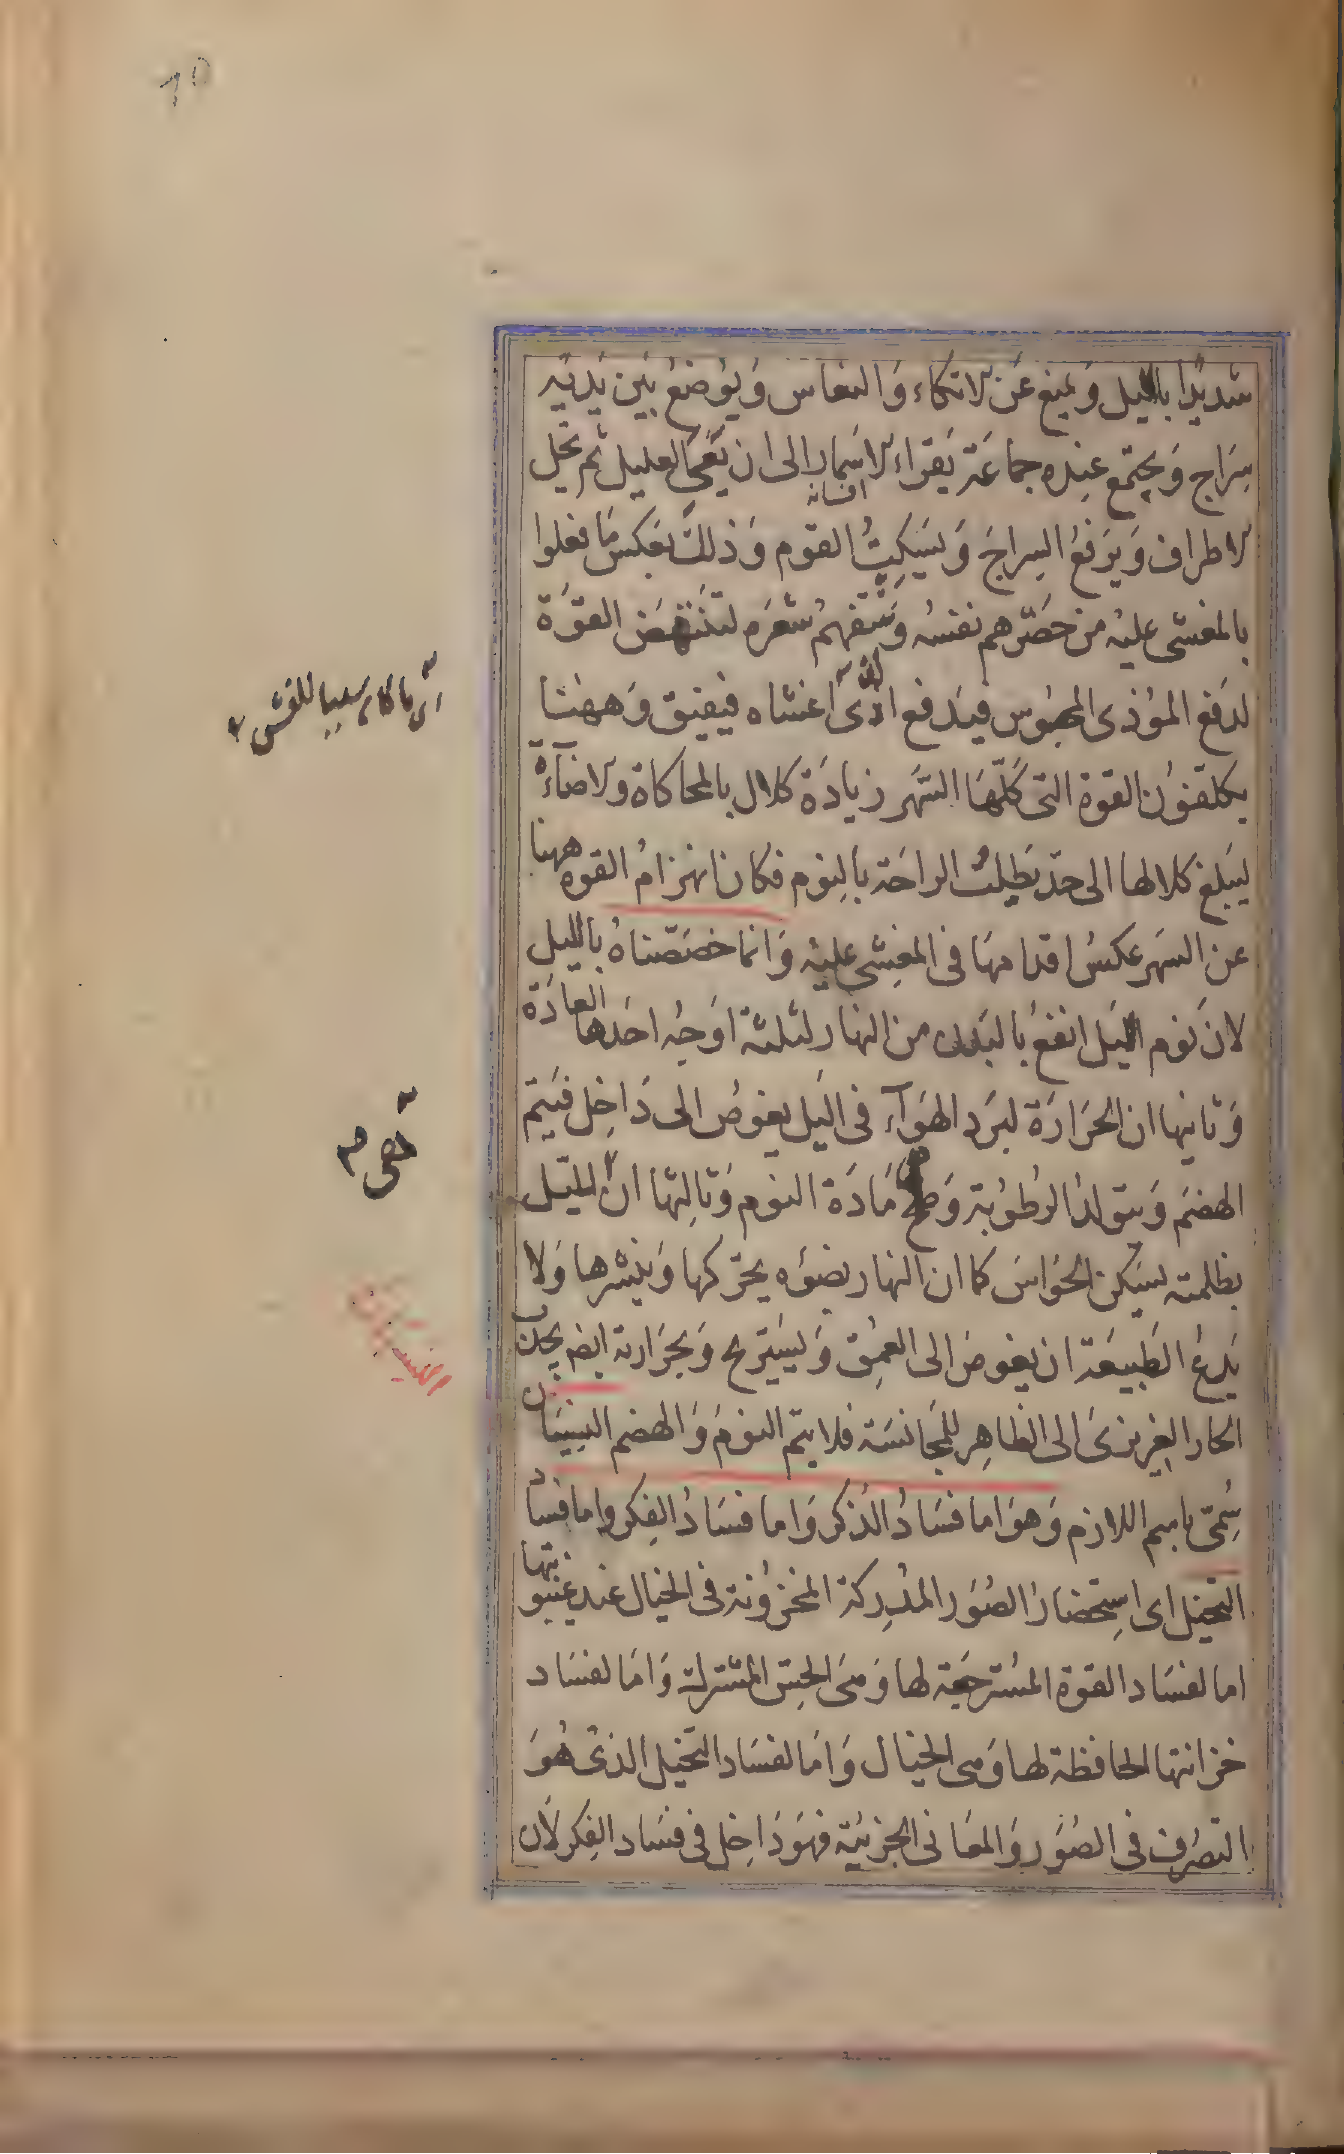 شديدًا بالليل وَيمنع عَن الاتكاء وَالنعاس وَيوُضعُ بَين يَديَه
سِرَاج وَيجتمع عنِده جماعَة يَقراء الاَسمار الى ان يَعَىَ العليل ثم تحل
افسانه
الاطراف وَيرَفعُ السِراجَ وَيسَكِتُ القوم وَذلك بعَكسِ مَا فعلوا
بالمغشى عليه من حَصَرهم نفسَه وَنتفهم شعَره لتَنتهَض القوَة
لدَفع الموُذى المحبوُس فيَدفع اذىً اغشاه فيفيَق وَههنا
اى ما كان سببا للغشى
يكلفوُن القوة التى كَلّهَا السَّهَر زيادَة كلال بالمحاكاة والاضاَءة
ليَبلغ كلالها الى حدّ يَطلبُ الراحَة بالنِوم فكان انهزامُ القوه ههنا
عن السَهَر عكسُ اقدامهَا فى المغشِى عليه وَانما خصَصّناهُ بالليل
لان نَوم الليَل انفعُ بالبَدن من النهار لثلثة اوَجُه احَدها العادَة
وَثانيها ان الحَرَارَة لبَرَد الهَوَآء فى اليَل يغوصُ الى دَاخِل فيَتم
الهضَم وَيتوَلدُ الرطوُبَة وَهى مَادَة النوم وَثالثِها انّ الليَل
هى
بظلمته يسَكن الحَوَاسَ كما ان النهار بضوَءه يحَرّكها وَينَشرها وَلا
يَدعُ الطَبيعَة ان يغوصَ الى العمِق وَيسَتِرَيح وَبحَرَارته ايضَ يجذب
النسيان
الحار الغِريزىَ الى الظاهِر للمجَانسَة فلا يتم النومَ وَالهضم النسيَان
سُمّى باسِم اللازم وَهوَ اما فسَادُ الذكر وَاما فسَادُ الفِكر واما فساد
التخيل اى استِحضارُ الصوَر المدُركة المخزوُنة فى الخيال عند غيَبوبتها
اما لفسَاد القوة المسُترجعَة لها وَهىَ الحِسّ المشترك وَاما لفسَاد
خزانتها الحافظة لها وَهى الخيال وَاما لفسَاد التخيل الذى هُوَ
التصرُف فى الصُوَر وَالمعَانى الجزئيَة فهوَ دَاخِل فى فسَاد الفِكر لان